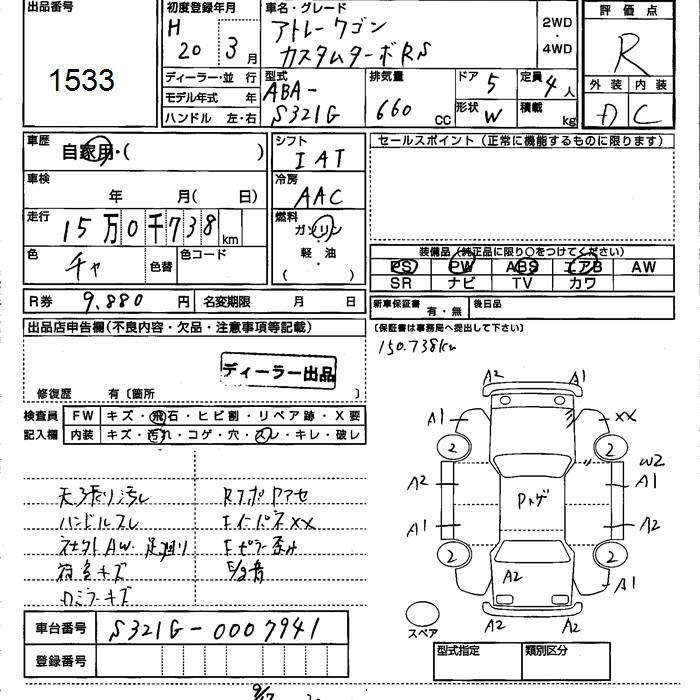 出品番号
1533
初度登録年月
H
20 3月
車名・グレード
アトレーワゴン
カスタムターボRS
2WD
・
4WD
評価点
R
外装 内装
D C
ディーラー・並行
モデル年式 年
ハンドル 左・右
型式
ABA-
S321G
排気量
660 CC
ドア 5
形状 W
定員 4人
積載 kg
車歴
自家用・( )
シフト
IAT
セールスポイント(正常に機能するものに限ります)
車検
年 月( 日)
冷房
AAC
走行
15万0千738km
燃料
ガソリン
・
軽・油
( )
色
チャ
色替
色コード
装備品(純正品に限り○をつけてください)
PS PW ABS エアB AW
SR ナビ TV カワ
R券 9,880円 名変期限 月 日
新車保証書 有・無 後日品
(保証書は事務局へ提出して下さい)
150.738km
出品店申告欄(不良内容・欠品・注意事項等記載)
ディーラー出品
修復歴 有〔箇所 〕
検査員
記入欄
FW キズ・飛石・ヒビ割・リペア跡・X要
内装 キズ・汚れ・コゲ・穴・スレ・キレ・破レ
天張り汚レ
ハンドルスレ
社外AW・足廻り
荷室キズ
ロミラーキズ
Rフロアセ
FインパネXX
Fピラー歪み
E/g音
A2 A1
A1 XX
2 2
W2
A2 A1
Pトゲ
A1 A2
2 2
A2
A1
A2 A2
スペア
車台番号 S321G-0007941
登録番号
型式指定 類別区分